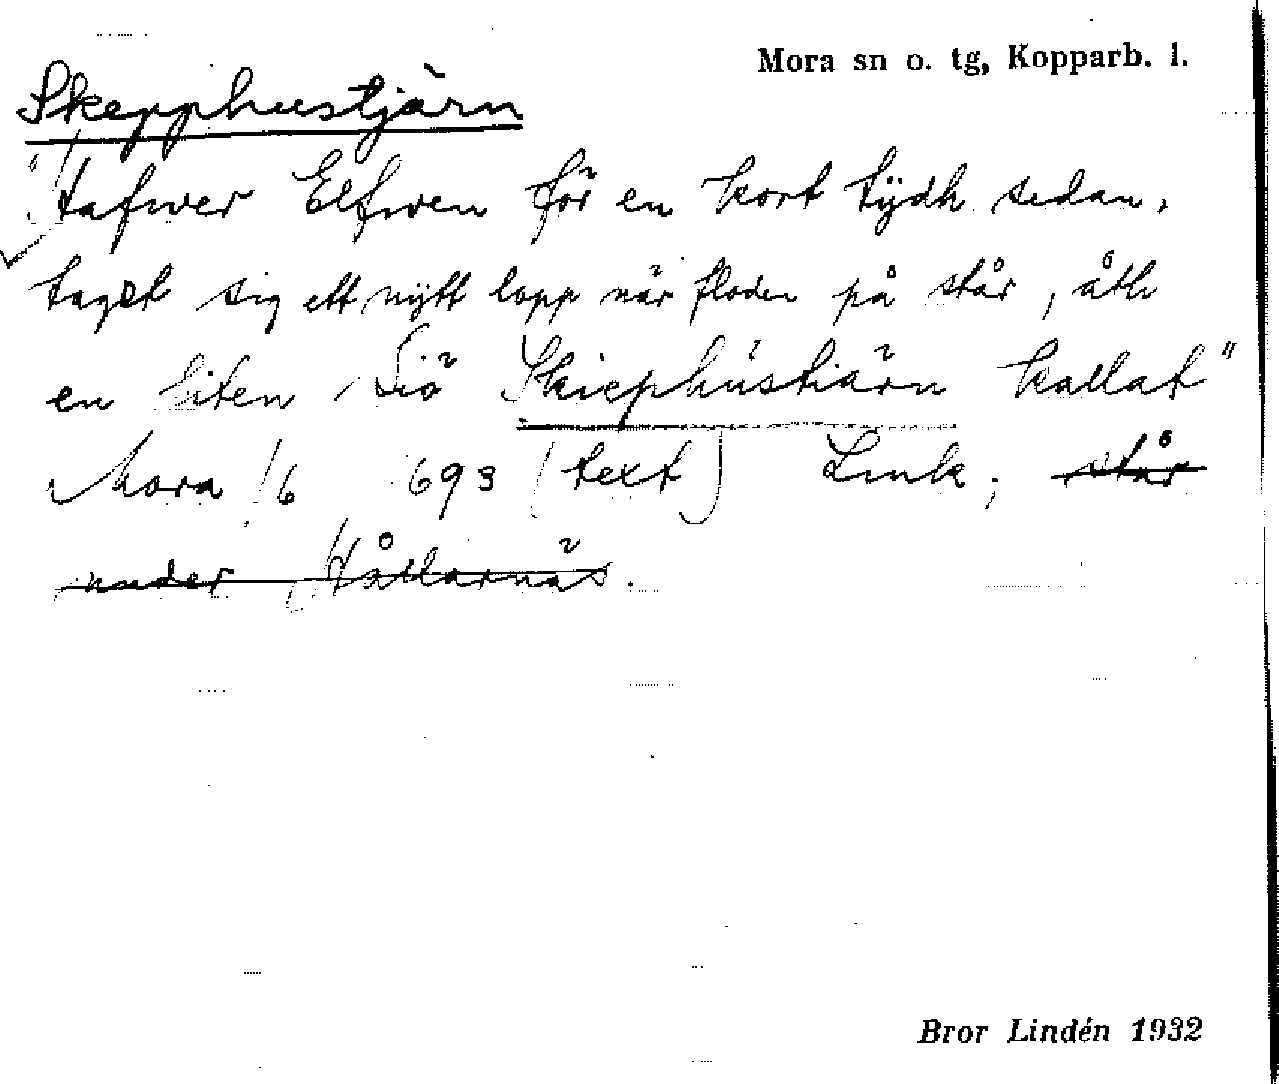 Mora sn o. tg, Kopparb. l.
Skepphustjärn
"Hafwer Elfwen för en kort tÿdh sedan,
taget sig ett nÿtt lopp när floden på står, åth
en liten Siö Skiephústiärn kallat"
Mora 16 693 (text) Link;  står
under Hållarnäs.
Bror Lindén 1932